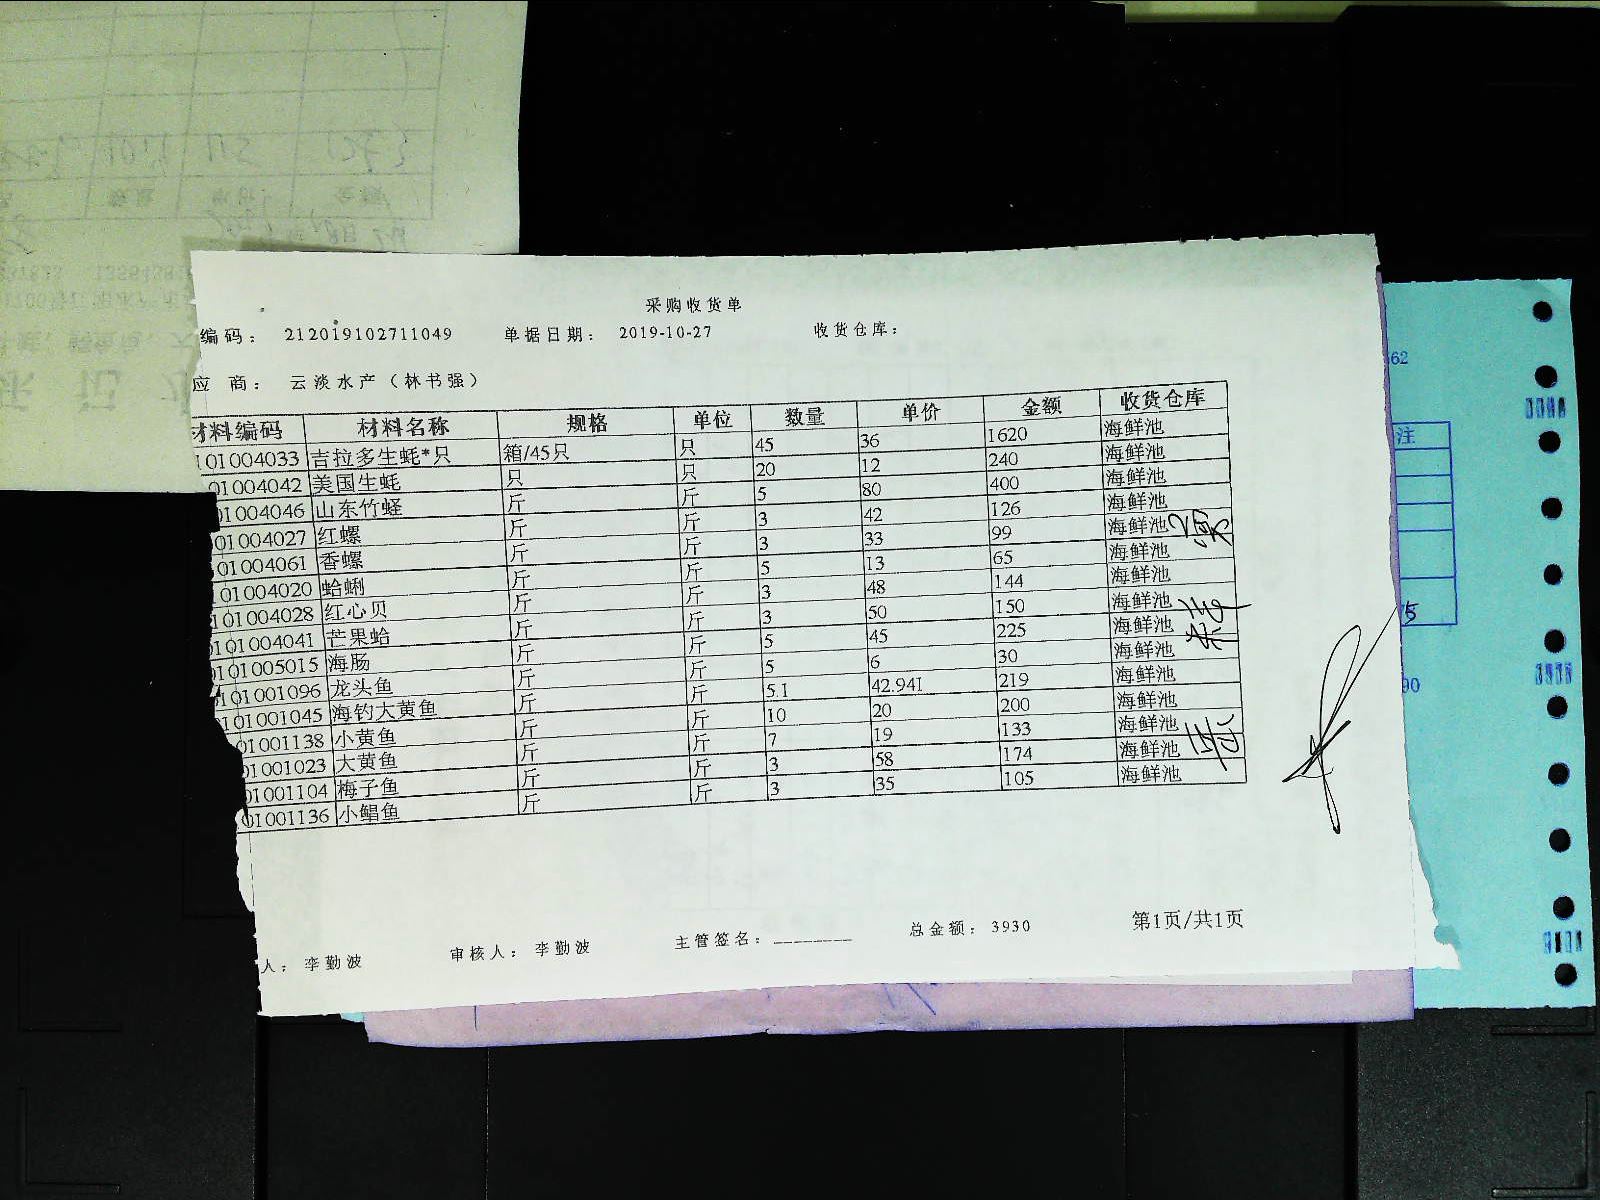 采购收货单
编码: 212019102711049 单据日期: 2019-10-27 收货仓库:
应 商: 云淡水产(林书强)
材料编码 材料名称 规格 单位 数量 单价 金额 收货仓库
101004033 吉拉多生蚝*只 箱/45只 只 45 36 1620 海鲜池
01004042 美国生蚝 只 只 20 12 240 海鲜池
01004046 山东竹蛏 斤 斤 5 80 400 海鲜池
01004027 红螺 斤 斤 3 42 126 海鲜池
01004061 香螺 斤 斤 3 33 99 海鲜池
01004020 蛤蜊 斤 斤 5 13 65 海鲜池
101004028 红心贝 斤 斤 3 48 144 海鲜池
101004041 芒果蛤 斤 斤 3 50 150 海鲜池
0101005015 海肠 斤 斤 5 45 225 海鲜池
0101001096 龙头鱼 斤 斤 5 6 30 海鲜池
0101001045 海钓大黄鱼 斤 斤 5.1 42.941 219 海鲜池
01001138 小黄鱼 斤 斤 10 20 200 海鲜池
01001023 大黄鱼 斤 斤 7 19 133 海鲜池
01001104 梅子鱼 斤 斤 3 58 174 海鲜池
01001136 小鲳鱼 斤 斤 3 35 105 海鲜池
人: 李勤波 审核人: 李勤波 主管签名: ________ 总金额: 3930 第1页/共1页
62
注
75
90